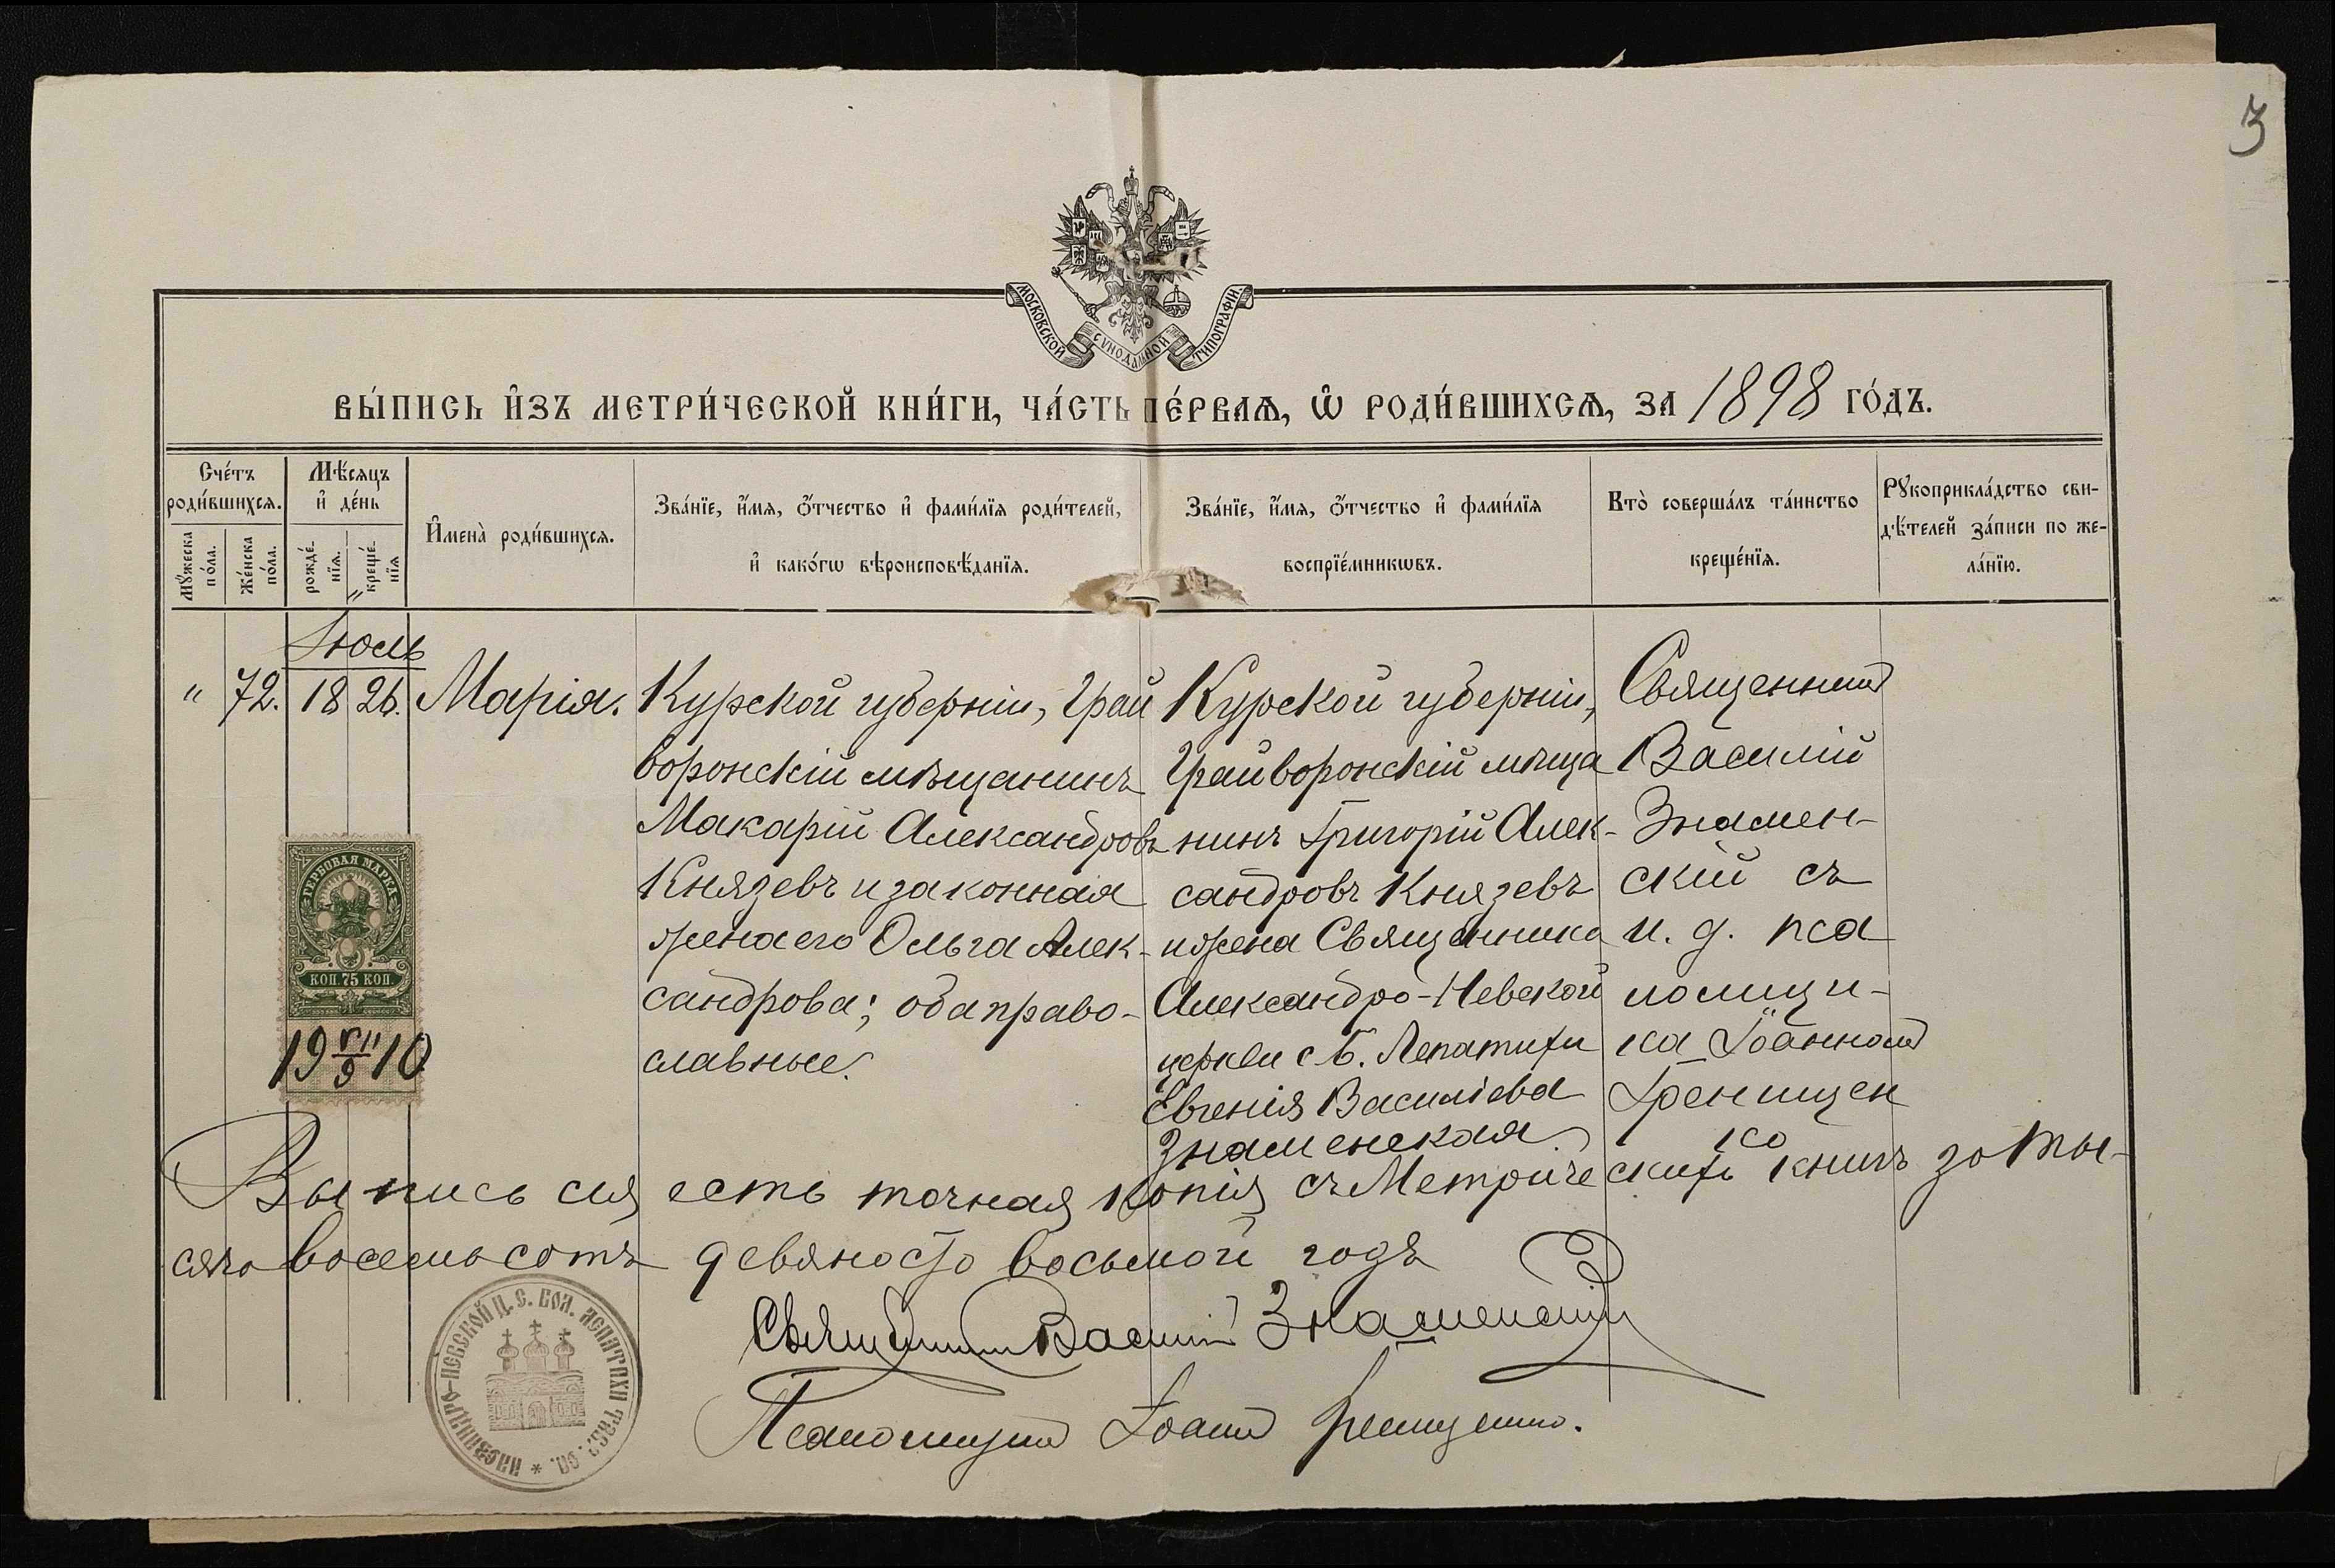 3
МОСКОВСКОЙ СУНОДАЛЬНОЙ ТИПОГРАФІИ.
ВЫ́ПИСЬ И҆ЗЪ МЕТРИ́ЧЕСКОЙ КНИ́ГИ, ЧА́СТЬ ПЕ́РВАѦ, Ѡ҆ РОДИ́ВШИХСѦ, ЗА 1898 ГО́ДЪ.
Сче́тъ
роди́вшихсѧ.
Мꙋ́жеска
по́ла.
Же́нска
по́ла.
Мѣ́сѧцъ
и҆ де́нь
рожде́-
нїѧ.
креще́-
нїѧ
И҆мена̀ роди́вшихсѧ.
Зва́нїе, и҆́мѧ, ѻ҆́тчество и҆ фами́лїѧ роди́телей,
и҆ како́гѡ вѣроисповѣ́данїѧ.
Зва́нїе, и҆́мѧ, ѻ҆́тчество и҆ фами́лїѧ
воспрїе́мникѡвъ.
Кто̀ соверша́лъ та́инство
креще́нїѧ.
Рꙋкоприкла́дство сви-
дѣ́телей за́писи по же-
ла́нїю.
Іюль
" 72. 18 26. Марія.
Курской губерніи, Грай
воронскій мѣщанинъ
Макарій Александровъ
Князевъ и законная
жена его Ольга Алек-
сандрова; оба право-
славные.
Курской губерніи,
Грайворонскій мѣща
нинъ Григорій Алек-
сандровъ Князевъ
и жена Священника
Александро-Невской
церкви с. Б. Лепатихи
Евгенія Василіева
Знаменская
Священникъ
Василій
Знамен-
скій съ
и. д. пса
ломщи-
ка Іоанномъ
Гренищен
ко
ГЕРБОВАЯ МАРКА
КОП. 75 КОП.
19 VII/9 10
Выпись сія есть точная копія съ Метрическихъ книгъ за ты-
сяча восемьсотъ девяносто восьмой годъ
Священникъ Василій Знаменскій
Псаломщикъ Іоаннъ Гренищенко.